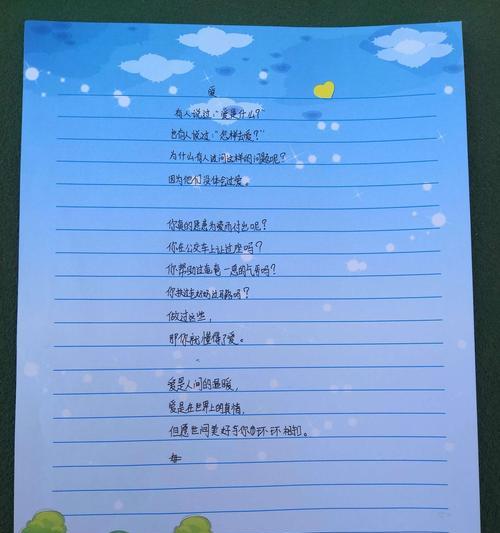 爱
有人说过:“爱是什么?”
也有人说过:“怎样去爱?”
为什么有人过问这样的问题呢?
因为他们没体会过爱。
你真的愿意为爱而付出呢?
你在公交车上让过座吗?
你帮助过爸爸一思的气呼吗?
你扶过老奶奶过马路吗?
做过这些,
那你就懂得了爱。
爱是人间的温暖,
爱是在世界上的真情,
但愿世间美好与你环环相扣。